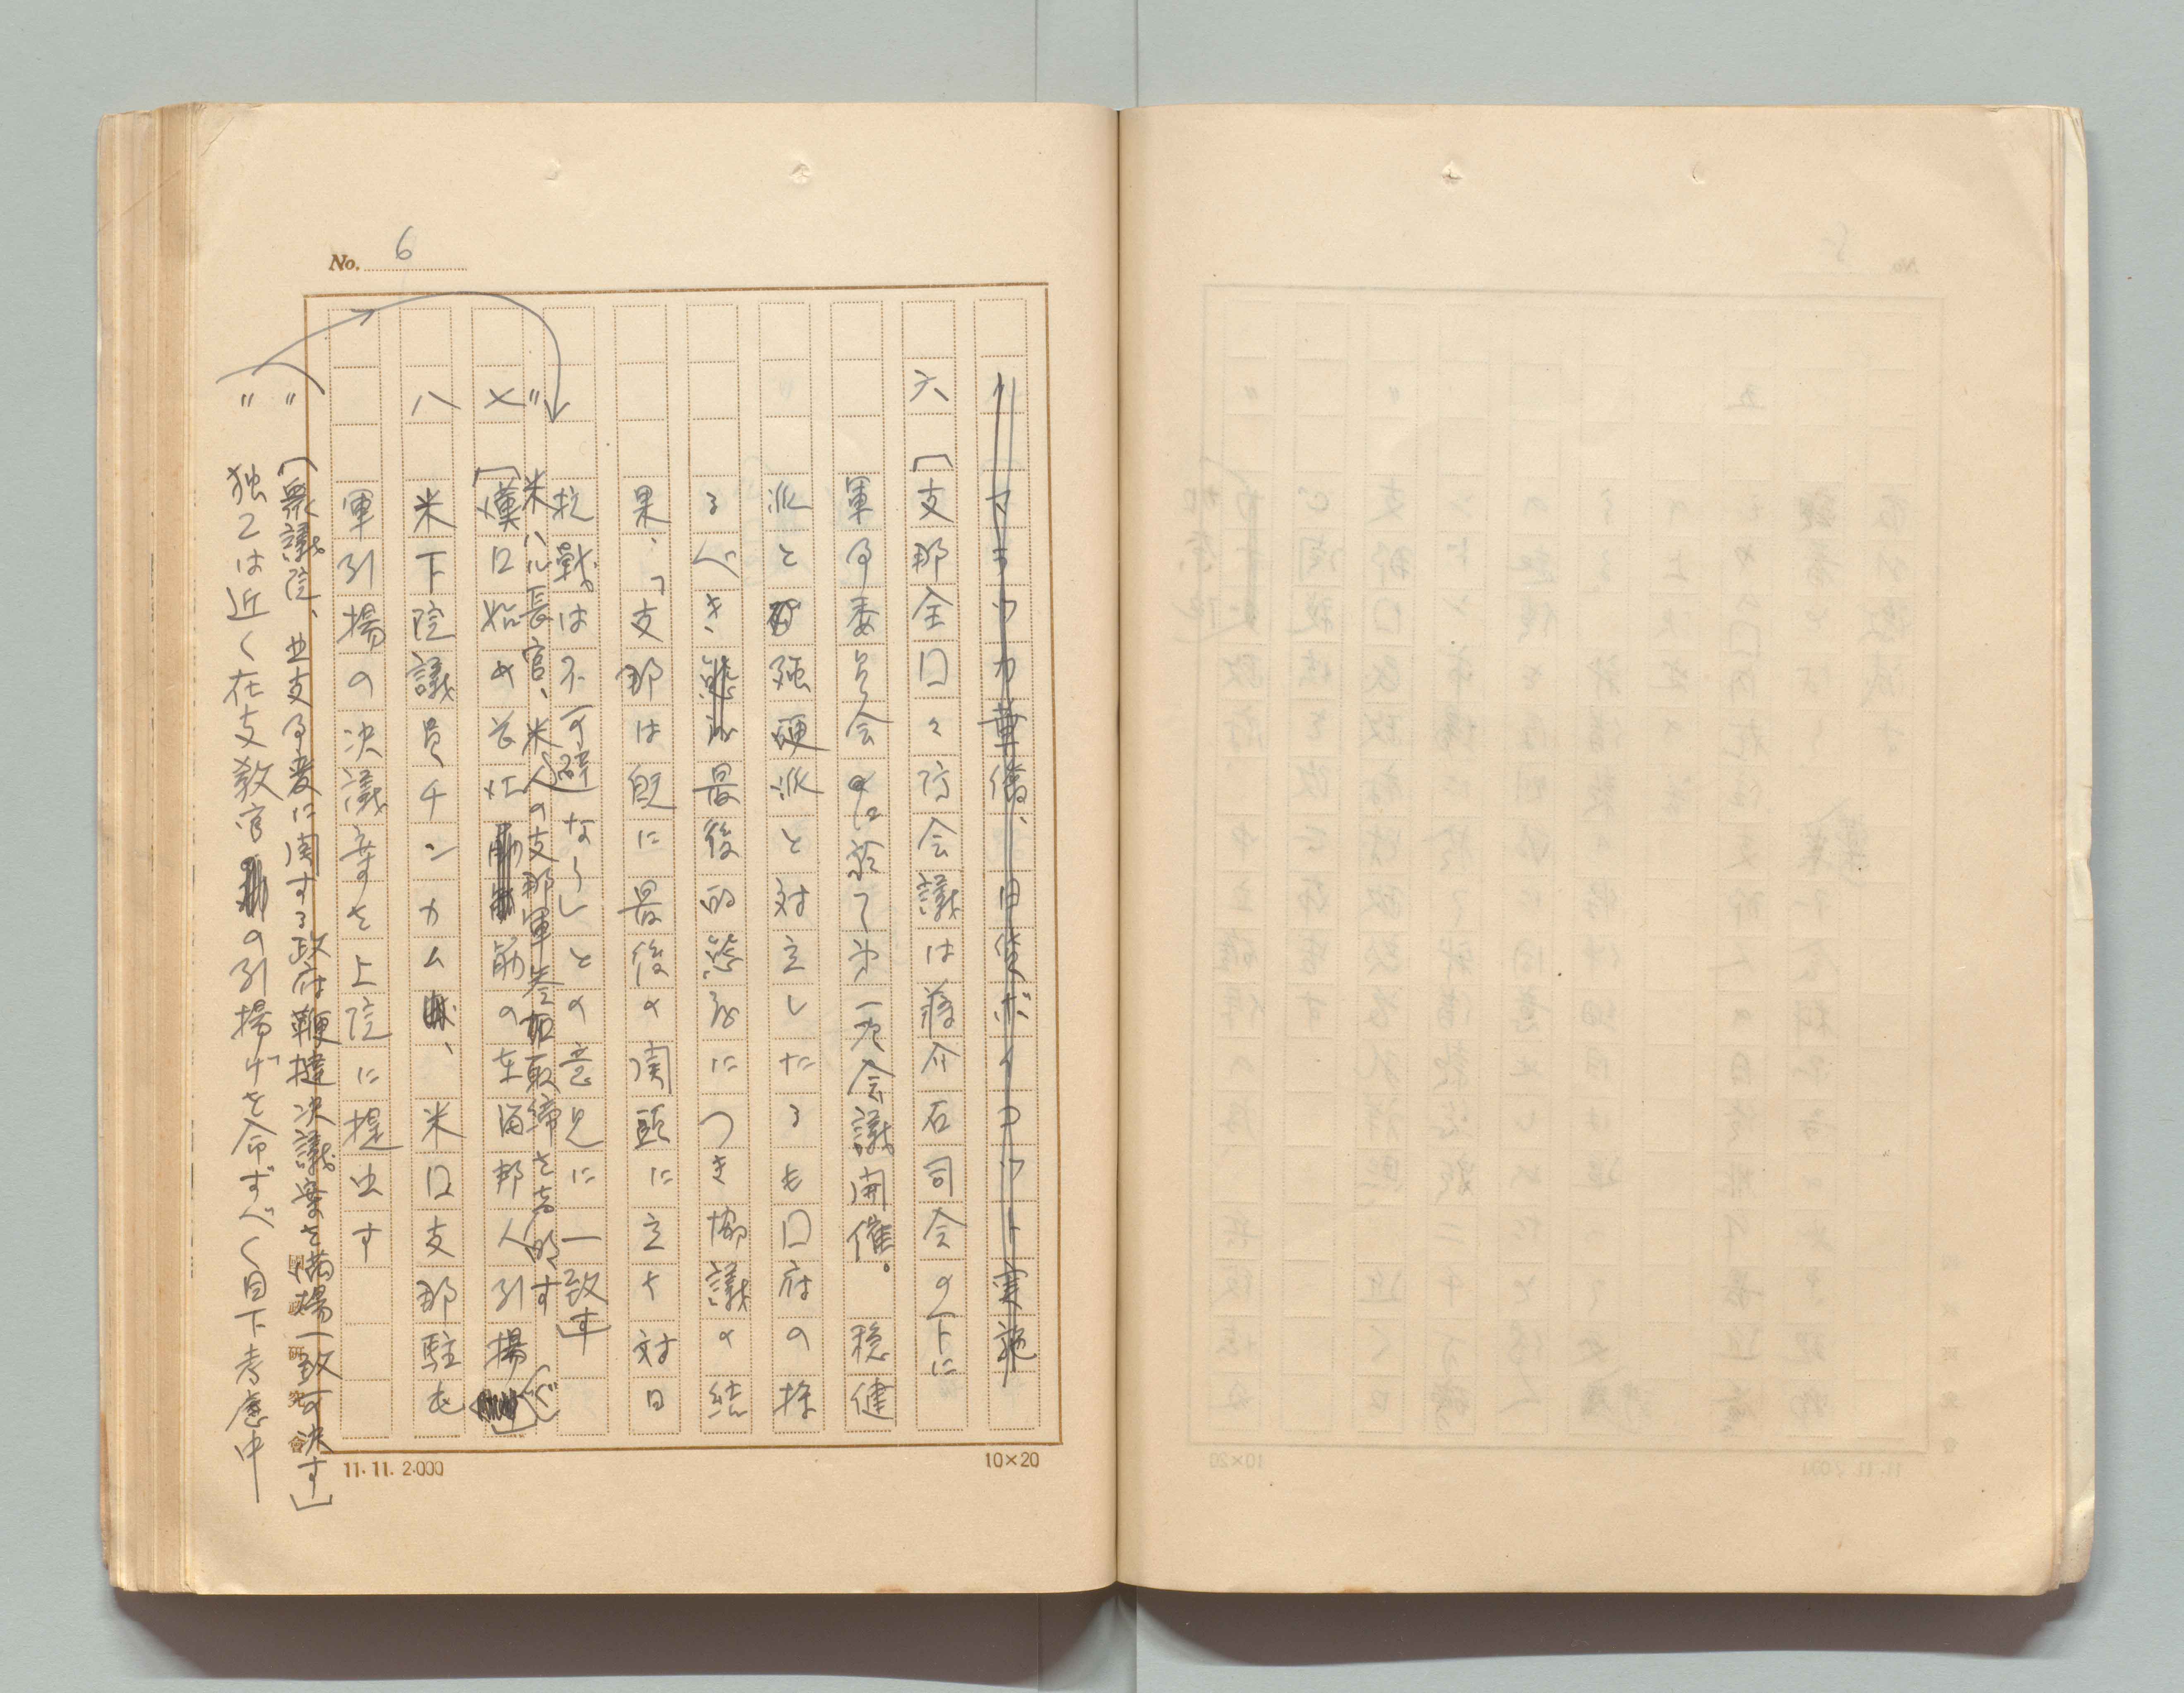 No. 6
〃 マラッカ華僑、日貨ボイコット実施
六 〔支那全口々防会議は蒋介石司会の下に
軍事委員会に於て第一次会議開催。 穏健
派と強硬派と対立したるも口府の採
るべき、最後的態度につき協議の結
果、「支那は既に最後の関頭に立ち対日
抗戦は不可避なり」との意見に一致す」
〃 米ハル長官、米人の支那軍参加取締を言明す
七 〔漢口始め長江筋の在留邦人引揚
八 米下院議員チンカム、 米口支那駐屯
軍引揚の決議案を上院に提出す
〃 〔衆議院、北支事変に関する政府鞭撻決議案を満場一致可決す」
〃 独乙は近く在支教官の引揚げを命ずべく目下考慮中
研究會
11.11.2.000
10×20